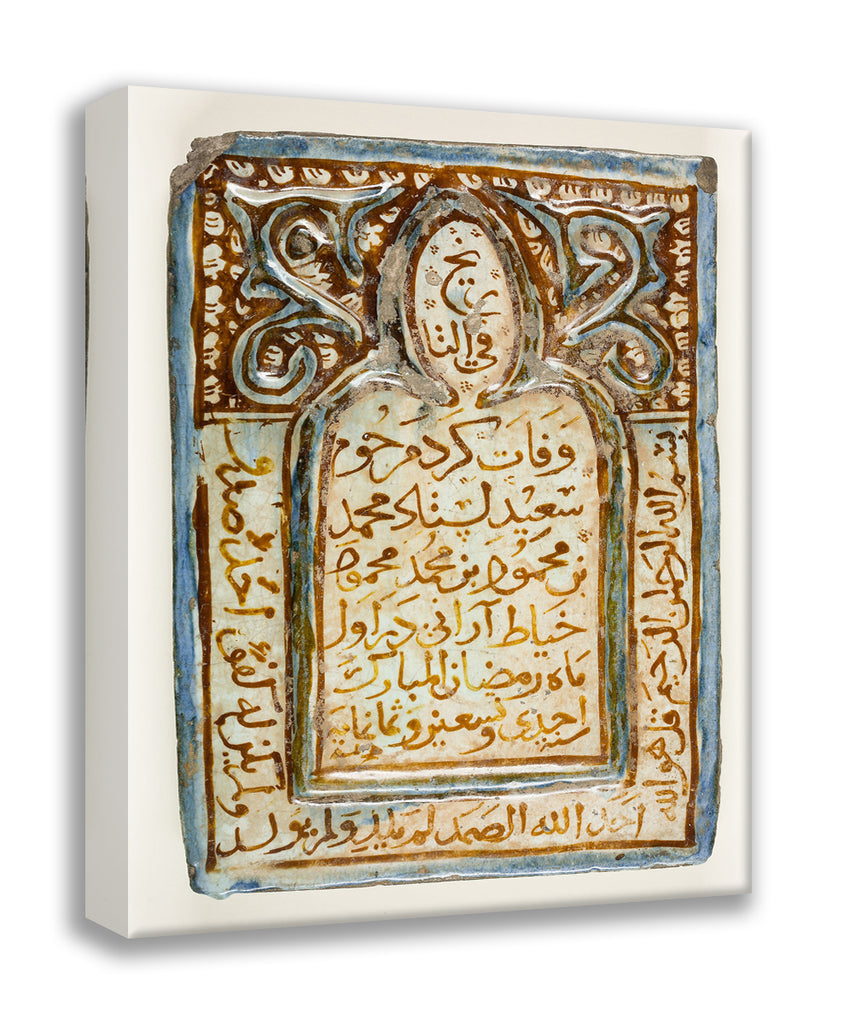 ريخ
في التا
وفات کرد مرحوم
سعید استاد محمد
بن محمود بن محمد محمود
خیاط آرانی در اول
ماه رمضان المبارک
سنة احدی وتسعین وثمانمایة
بسم الله الرحمن الرحیم قل هو الله
احد الله الصمد لم یلد ولم یولد
ولم یکن له کفوا احد